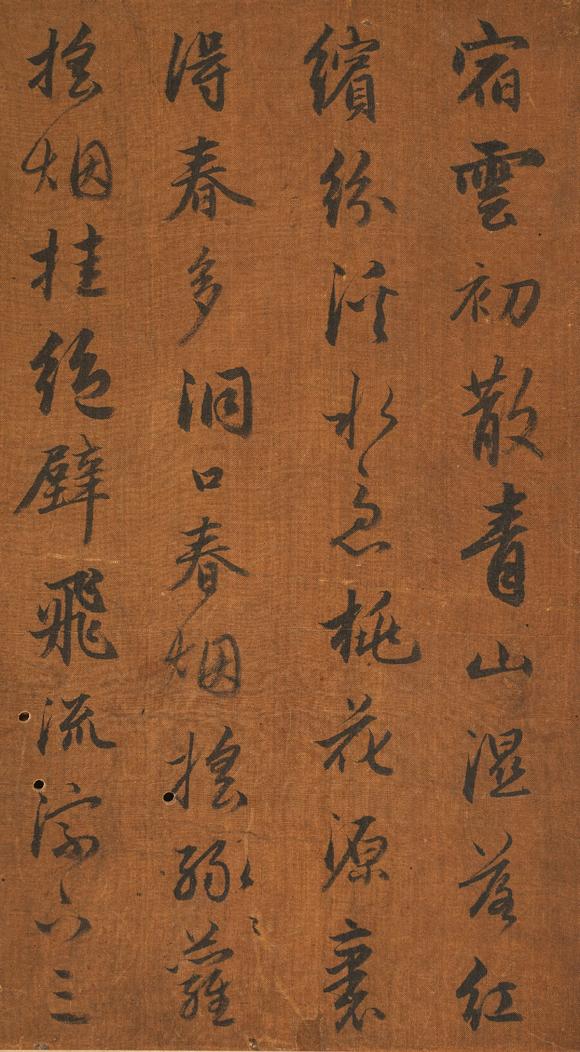 宿雲初散青山湿落紅
繽紛溪水急桃花源裏
得春多洞口春烟搖綠〻蘿〻
搖烟挂絕壁飛流淙下三